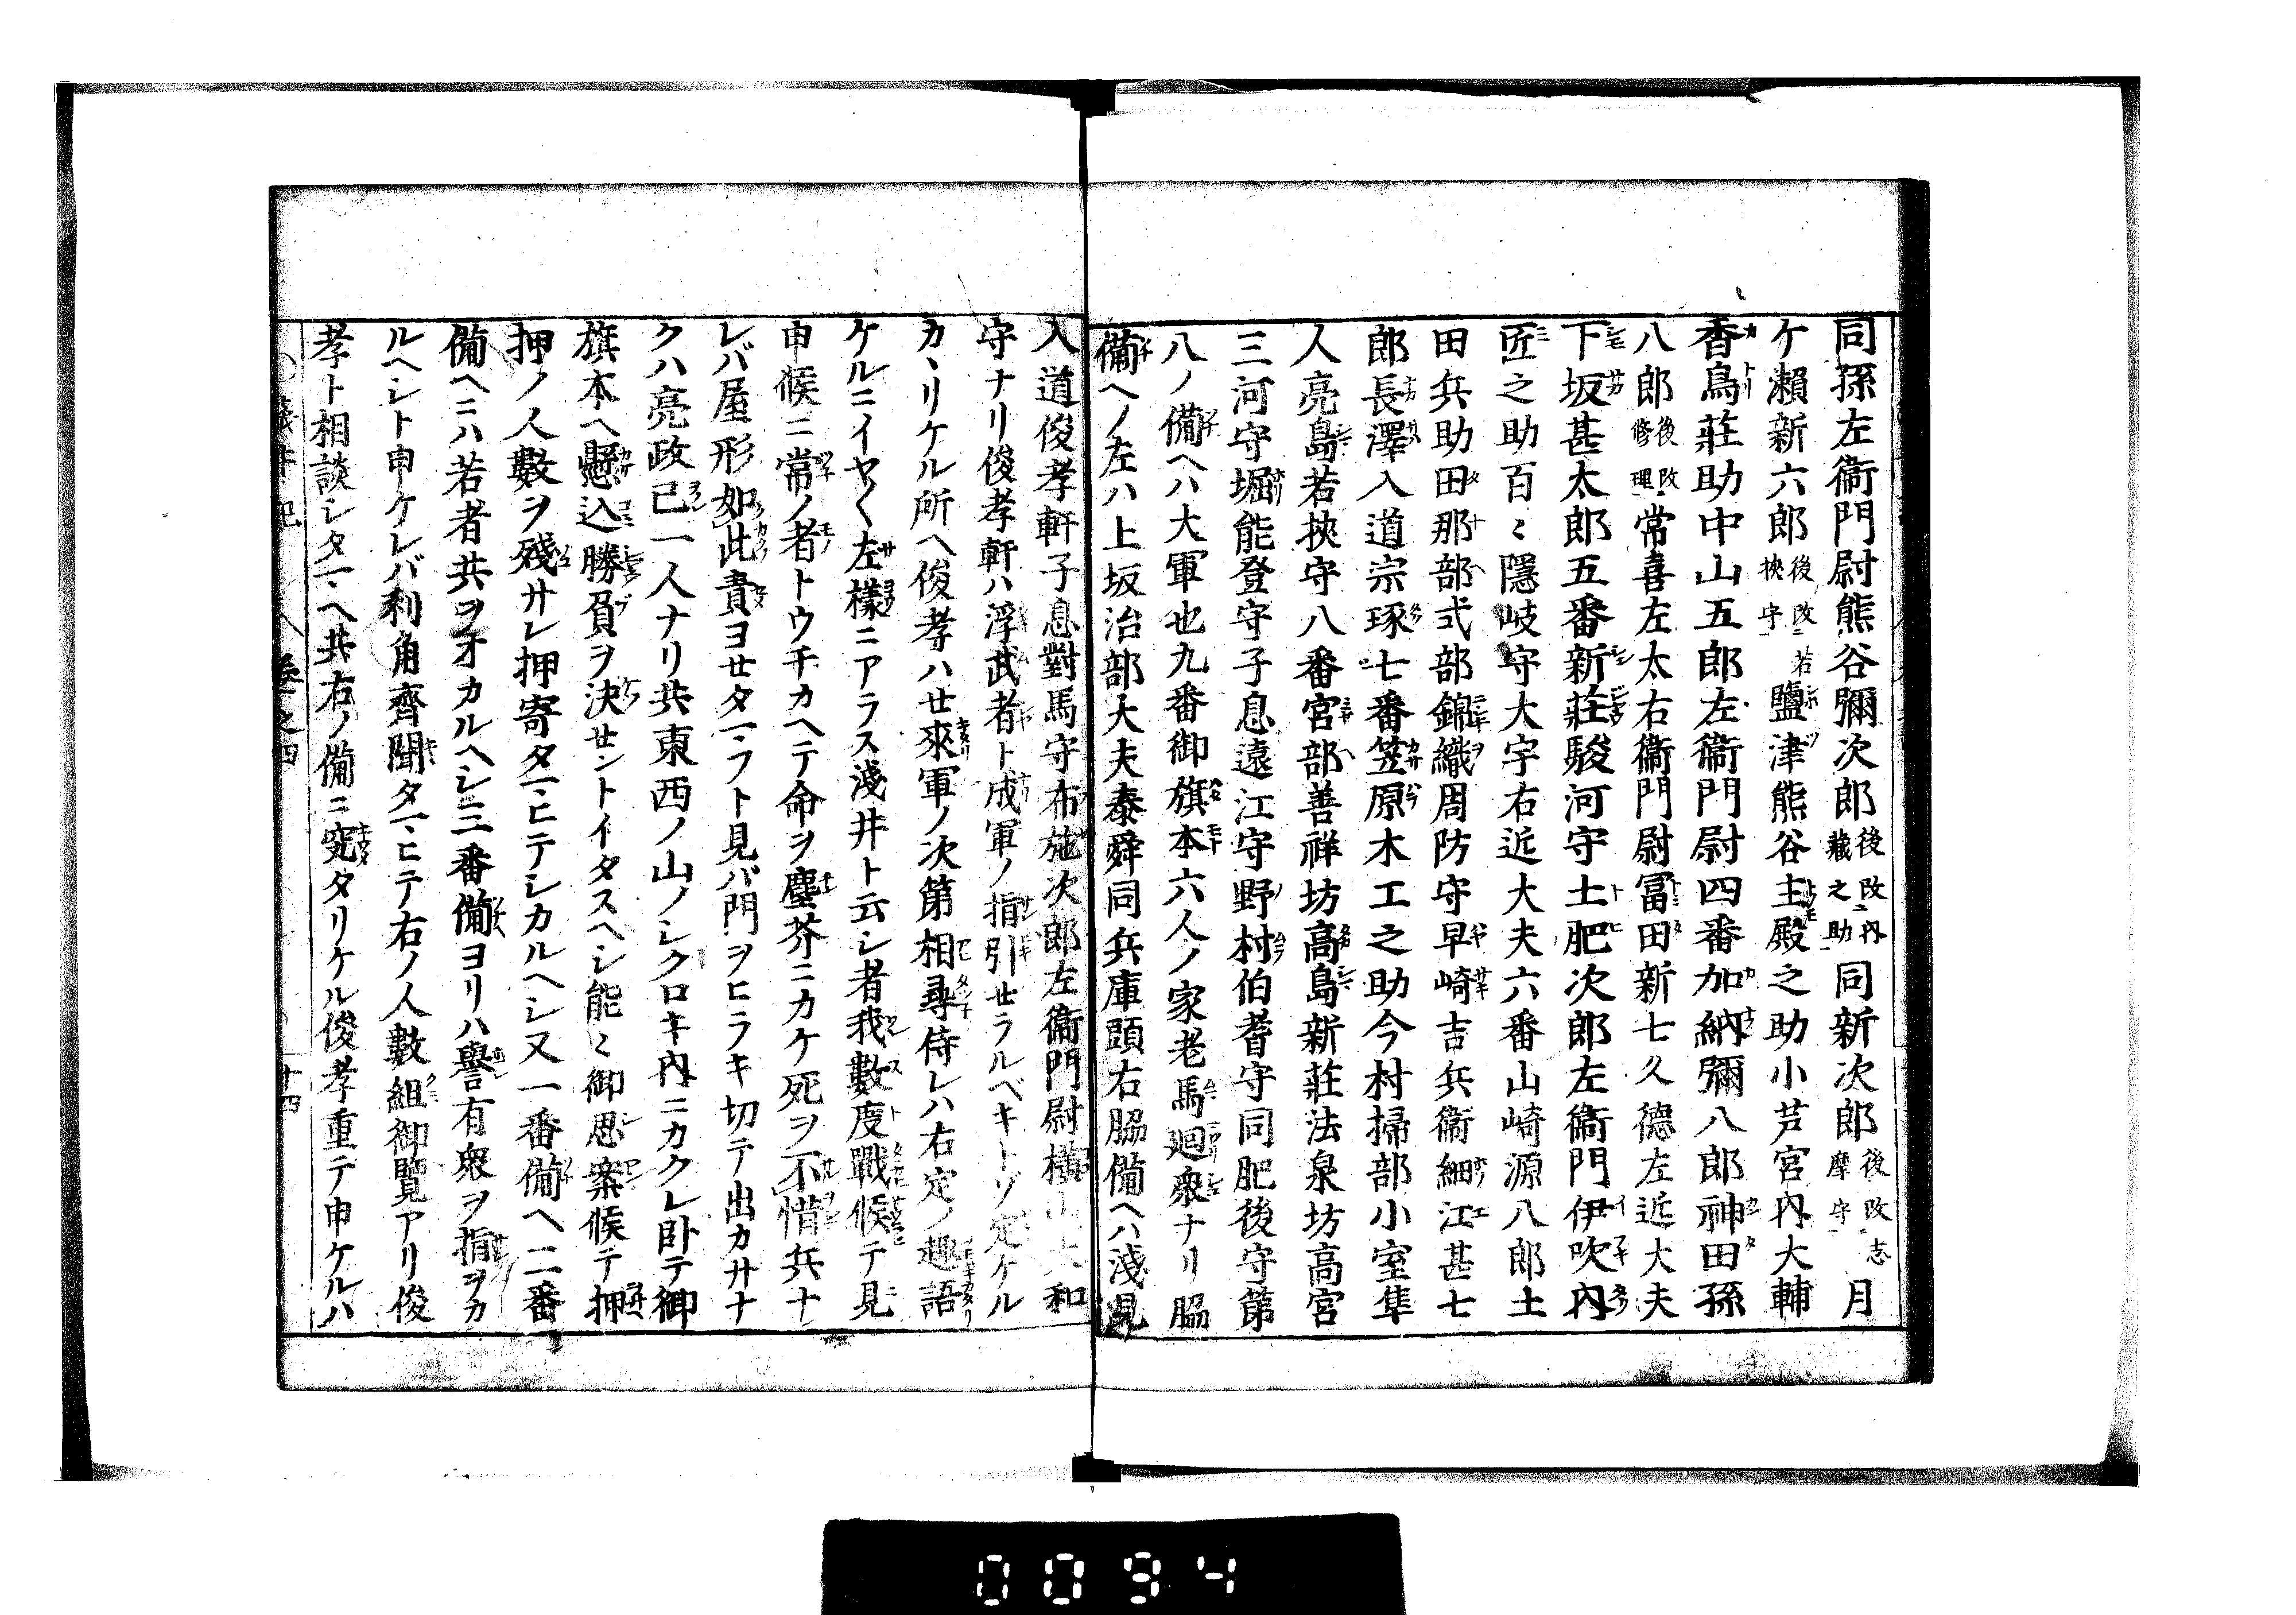 同孫左衞門尉熊谷彌次郎後改內藏之助同新次郎後改志摩守月
ケ瀨新六郎後改若挾守鹽津熊谷主殿之助小芦宮內大輔
香鳥莊助中山五郎左衞門尉四番加納彌八郎神田孫
八郎後改修理常喜左太右衞門尉冨田新七久德左近大夫
下坂甚太郎五番新莊駿河守土肥次郎左衞門伊吹內
匠之助百〻隱岐守大宇右近大夫六番山崎源八郎土
田兵助田那部式部錦織周防守早崎吉兵衞細江甚七
郎長澤入道宗琢七番笠原木工之助今村掃部小室隼
人亮島若挾守八番宮部善祥坊高島新莊法泉坊高宮
三河守堀能登守子息遠江守野村伯耆守同肥後守第
八ノ備ヘハ大軍也九番御旗本六人ノ家老馬廻衆ナリ脇
備ヘノ左ハ上坂治部大夫泰舜同兵庫頭右脇備ヘハ淺見
入道俊孝軒子息對馬守布施次郎左衞門尉橫山大和
守ナリ俊孝軒ハ浮武者ト成軍ノ指引せラルベキトゾ定ケル
カヽリケル所ヘ俊孝ハせ來軍ノ次第相尋侍レハ右定ノ趣語
ケルニイヤ〱左樣ニアラス淺井ト云シ者我數度戰候テ見
申候ニ常ノ者トウチカヘテ命ヲ塵芥ニカケ死ヲ不惜兵ナ
レバ屋形如此責ヨせタマフト見バ門ヲヒラキ切テ出カサナ
クハ亮政己一人ナリ共東西ノ山ノシクロキ內ニカクレ臥テ御
旗本ヘ懸込勝負ヲ決せントイタスヘシ能〻御思案候テ押
押ノ人數ヲ殘サレ押寄タマヒテシカルヘシ又一番備ヘ二番
備ヘニハ若者共ヲオカルヘシ三番備ヨリハ譽有衆ヲ指ヲカ
ルヘシト申ケレバ利角齊聞タマヒテ右ノ人數組御覽アリ俊
孝ト相談シタマヘ共右ノ備ニ究タリケル俊孝重テ申ケルハ
卷之四 十四
0094